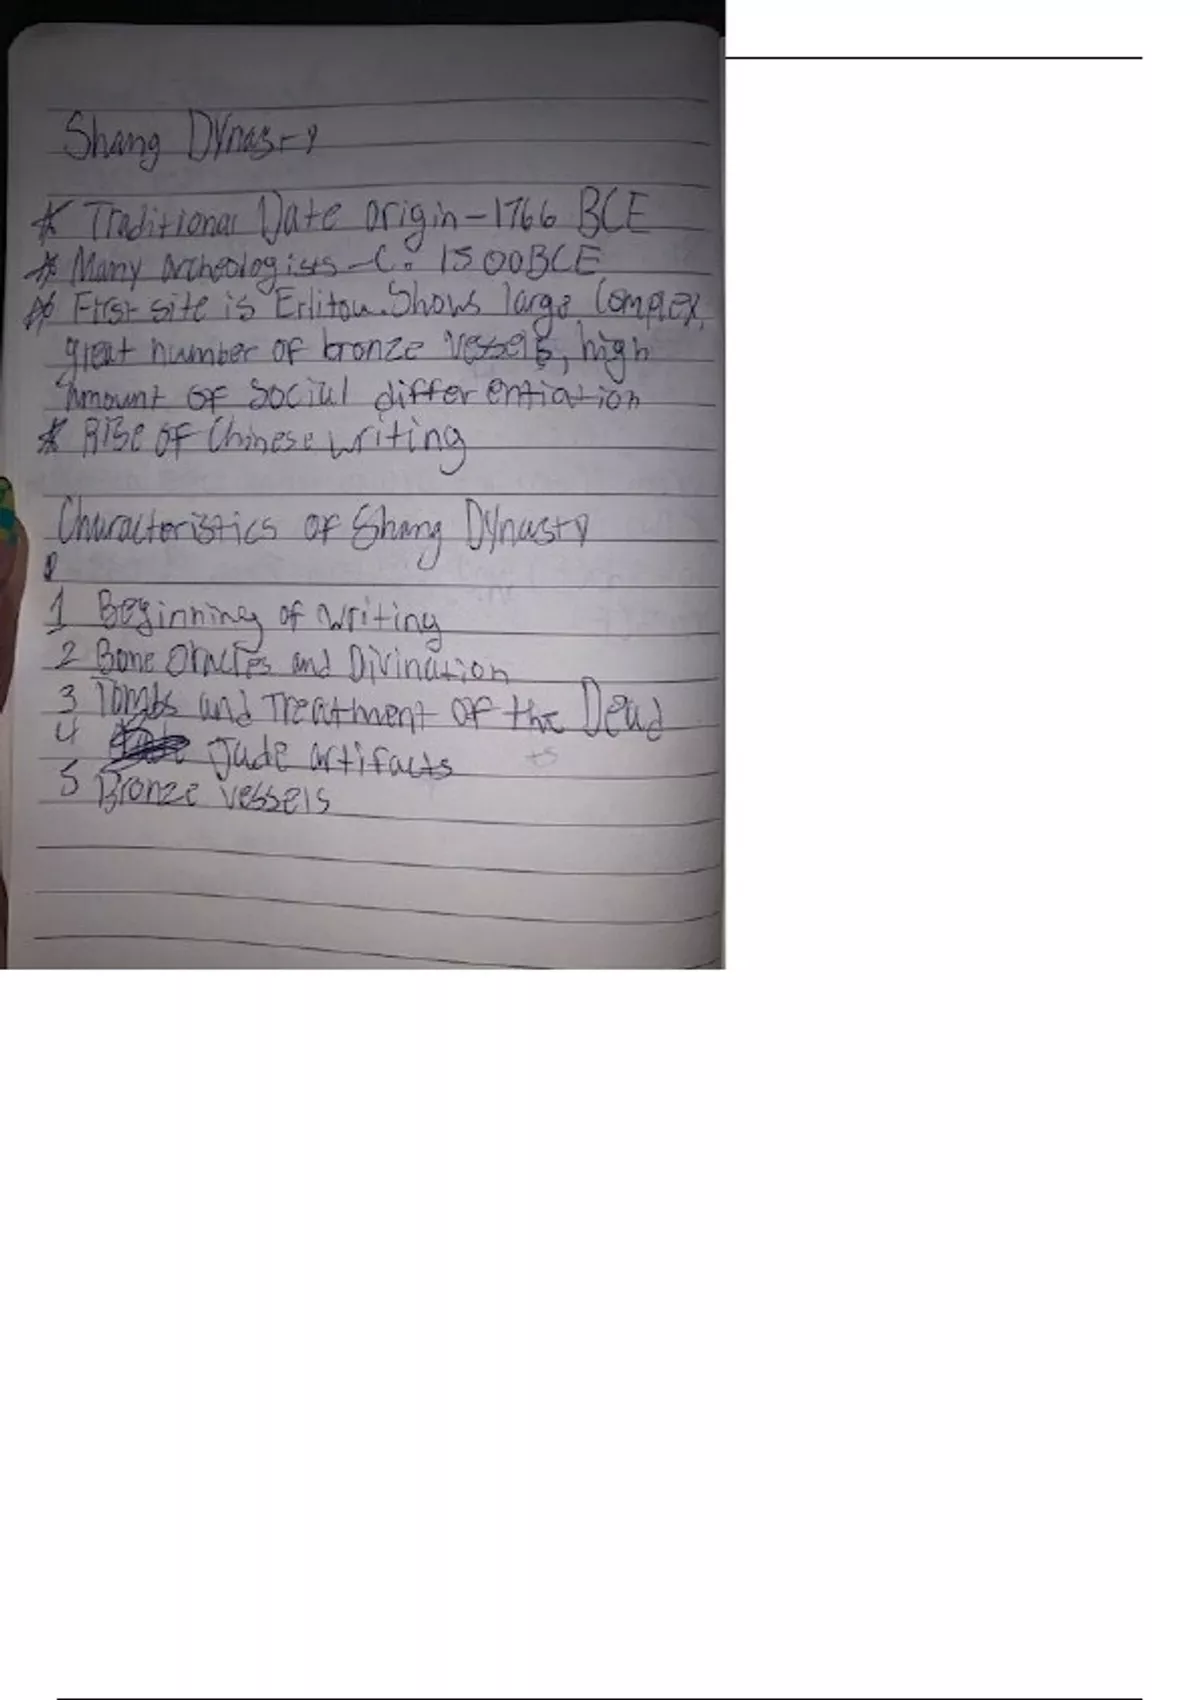 Shang Dynasty
* Traditional Date origin - 1766 BCE
* Many Archeologists - C. 1500 BCE
* First site is Erlitou. Shows large complex,
great number of bronze vessels, high
amount of social differentiation
* Rise of Chinese writing
Characteristics of Shang Dynasty
1 Beginning of writing
2 Bone Oracles and Divination
3 Tombs and Treatment of the Dead
4 Jade artifacts
5 Bronze vessels